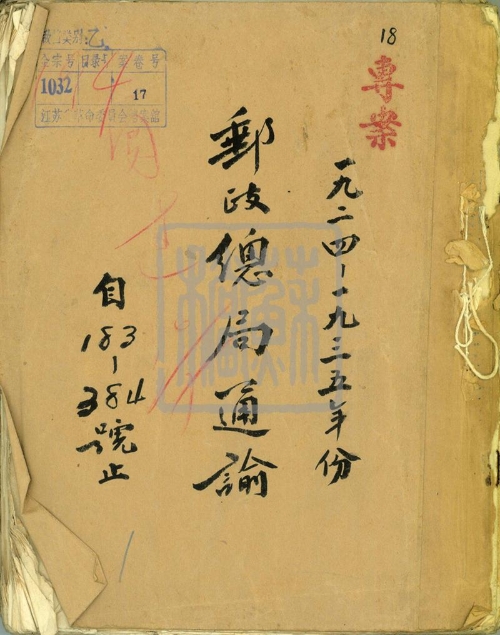 18
專案
一九二四-一九三五年份
郵政總局通諭
自183-384號止
全宗号 目录号 案卷号
1032 1 17
江苏